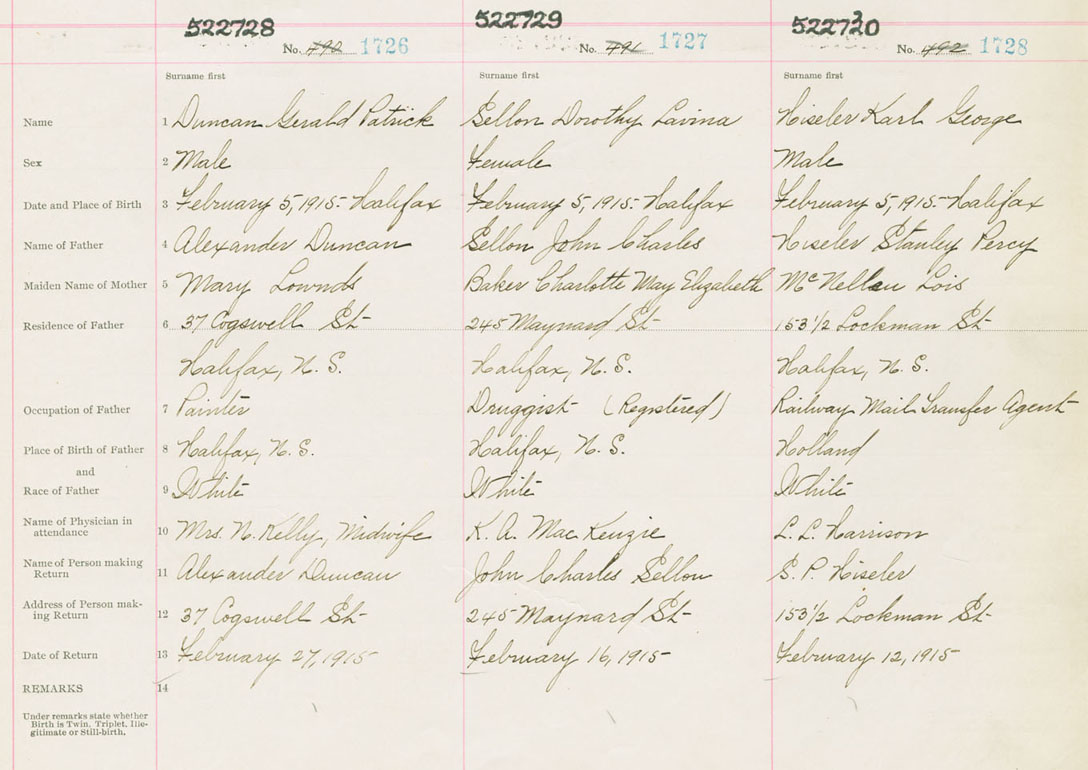 522728 522729 522730
No. 490 1726 No. 491 1727 No. 492 1728
Surname first Surname first Surname first
Name 1 Duncan Gerald Patrick Sellon Dorothy Lavina Hiseler Karl George
Sex 2 Male Female Male
Date and Place of Birth 3 February 5, 1915- Halifax February 5, 1915- Halifax February 5, 1915- Halifax
Name of Father 4 Alexander Duncan Sellon John Charles Hiseler Stanley Percy
Maiden Name of Mother 5 Mary Lownds Baker Charlotte May Elizabeth McNellan Lois
Residence of Father 6 37 Cogswell St 245 Maynard St 153 1/2 Lockman St
Halifax, N. S. Halifax, N. S. Halifax, N. S.
Occupation of Father 7 Painter Druggist (Registered) Railway Mail Transfer Agent
Place of Birth of Father 8 Halifax, N. S. Halifax, N. S. Holland
and
Race of Father 9 White White White
Name of Physician in
attendance 10 Mrs. N. Kelly, Midwife K. A. Mac Kenzie L. L. Harrison
Name of Person making
Return 11 Alexander Duncan John Charles Sellon S. P. Hiseler
Address of Person mak-
ing Return 12 37 Cogswell St 245 Maynard St 153 1/2 Lockman St
Date of Return 13 February 27, 1915 February 16, 1915 February 12, 1915
REMARKS 14
Under remarks state whether
Birth is Twin, Triplet, Ille-
gitimate or Still-birth.